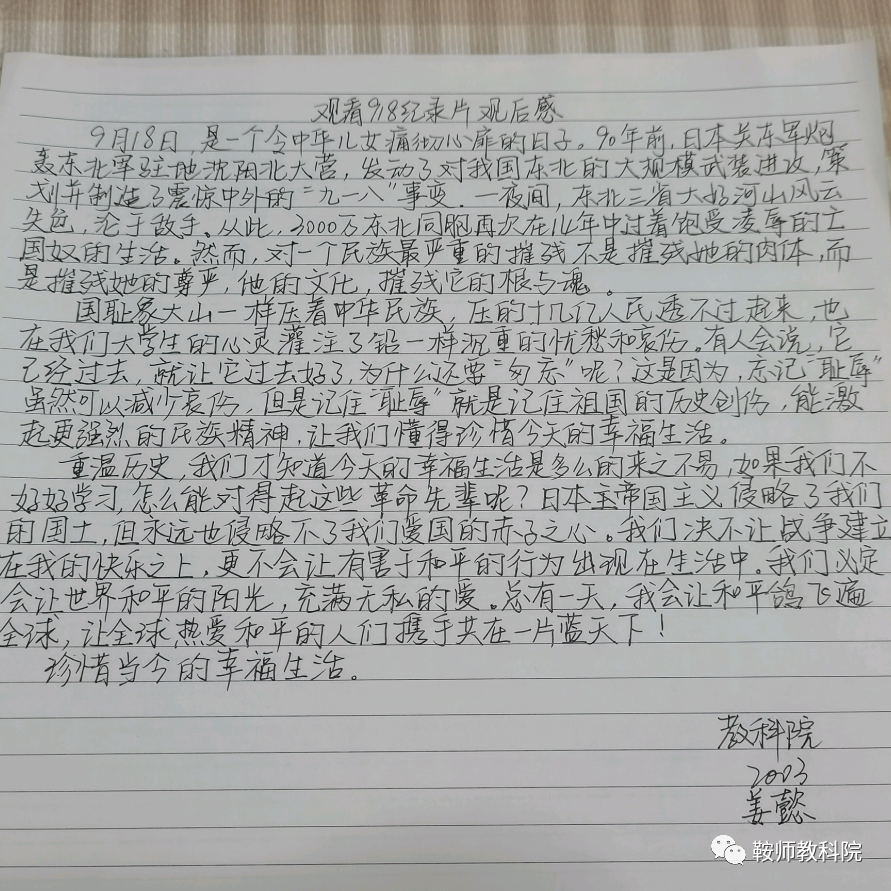 观看918纪录片 观后感
9月18日，是一个令中华儿女痛彻心扉的日子。90年前，日本关东军炮
轰东北军驻地沈阳北大营，发动了对我国东北的大规模武装进攻，策
划并制造了震惊中外的“九一八”事变。一夜间，东北三省大好河山风云
失色，沦于敌手。从此，3000万东北同胞再次在14年中过着饱受凌辱的亡
国奴的生活。然而，对一个民族最严重的摧残不是摧残她的肉体，而
是摧残她的尊严，他的文化，摧残它的根与魂。
国耻象大山一样压着中华民族，压的十几亿人民透不过起来，也
在我们大学生的心灵灌注了铅一样沉重的忧愁和哀伤。有人会说，它
已经过去，就让它过去好了，为什么还要“勿忘”呢？这是因为，忘记“耻辱”
虽然可以减少哀伤，但是记住“耻辱”就是记住祖国的历史创伤，能激
起更强烈的民族精神，让我们懂得珍惜今天的幸福生活。
重温历史，我们才知道今天的幸福生活是多么的来之不易，如果我们不
好好学习，怎么能对得起这些革命先辈呢？日本帝国主义侵略了我们
的国土，但永远也侵略不了我们爱国的赤子之心。我们决不让战争建立
在我的快乐之上，更不会让有害于和平的行为出现在生活中。我们必定
会让世界和平的阳光，充满无私的爱。总有一天，我会让和平鸽飞遍
全球，让全球热爱和平的人们携手共在一片蓝天下！
珍惜当今的幸福生活。
教科院
2003
姜懿
鞍师教科院